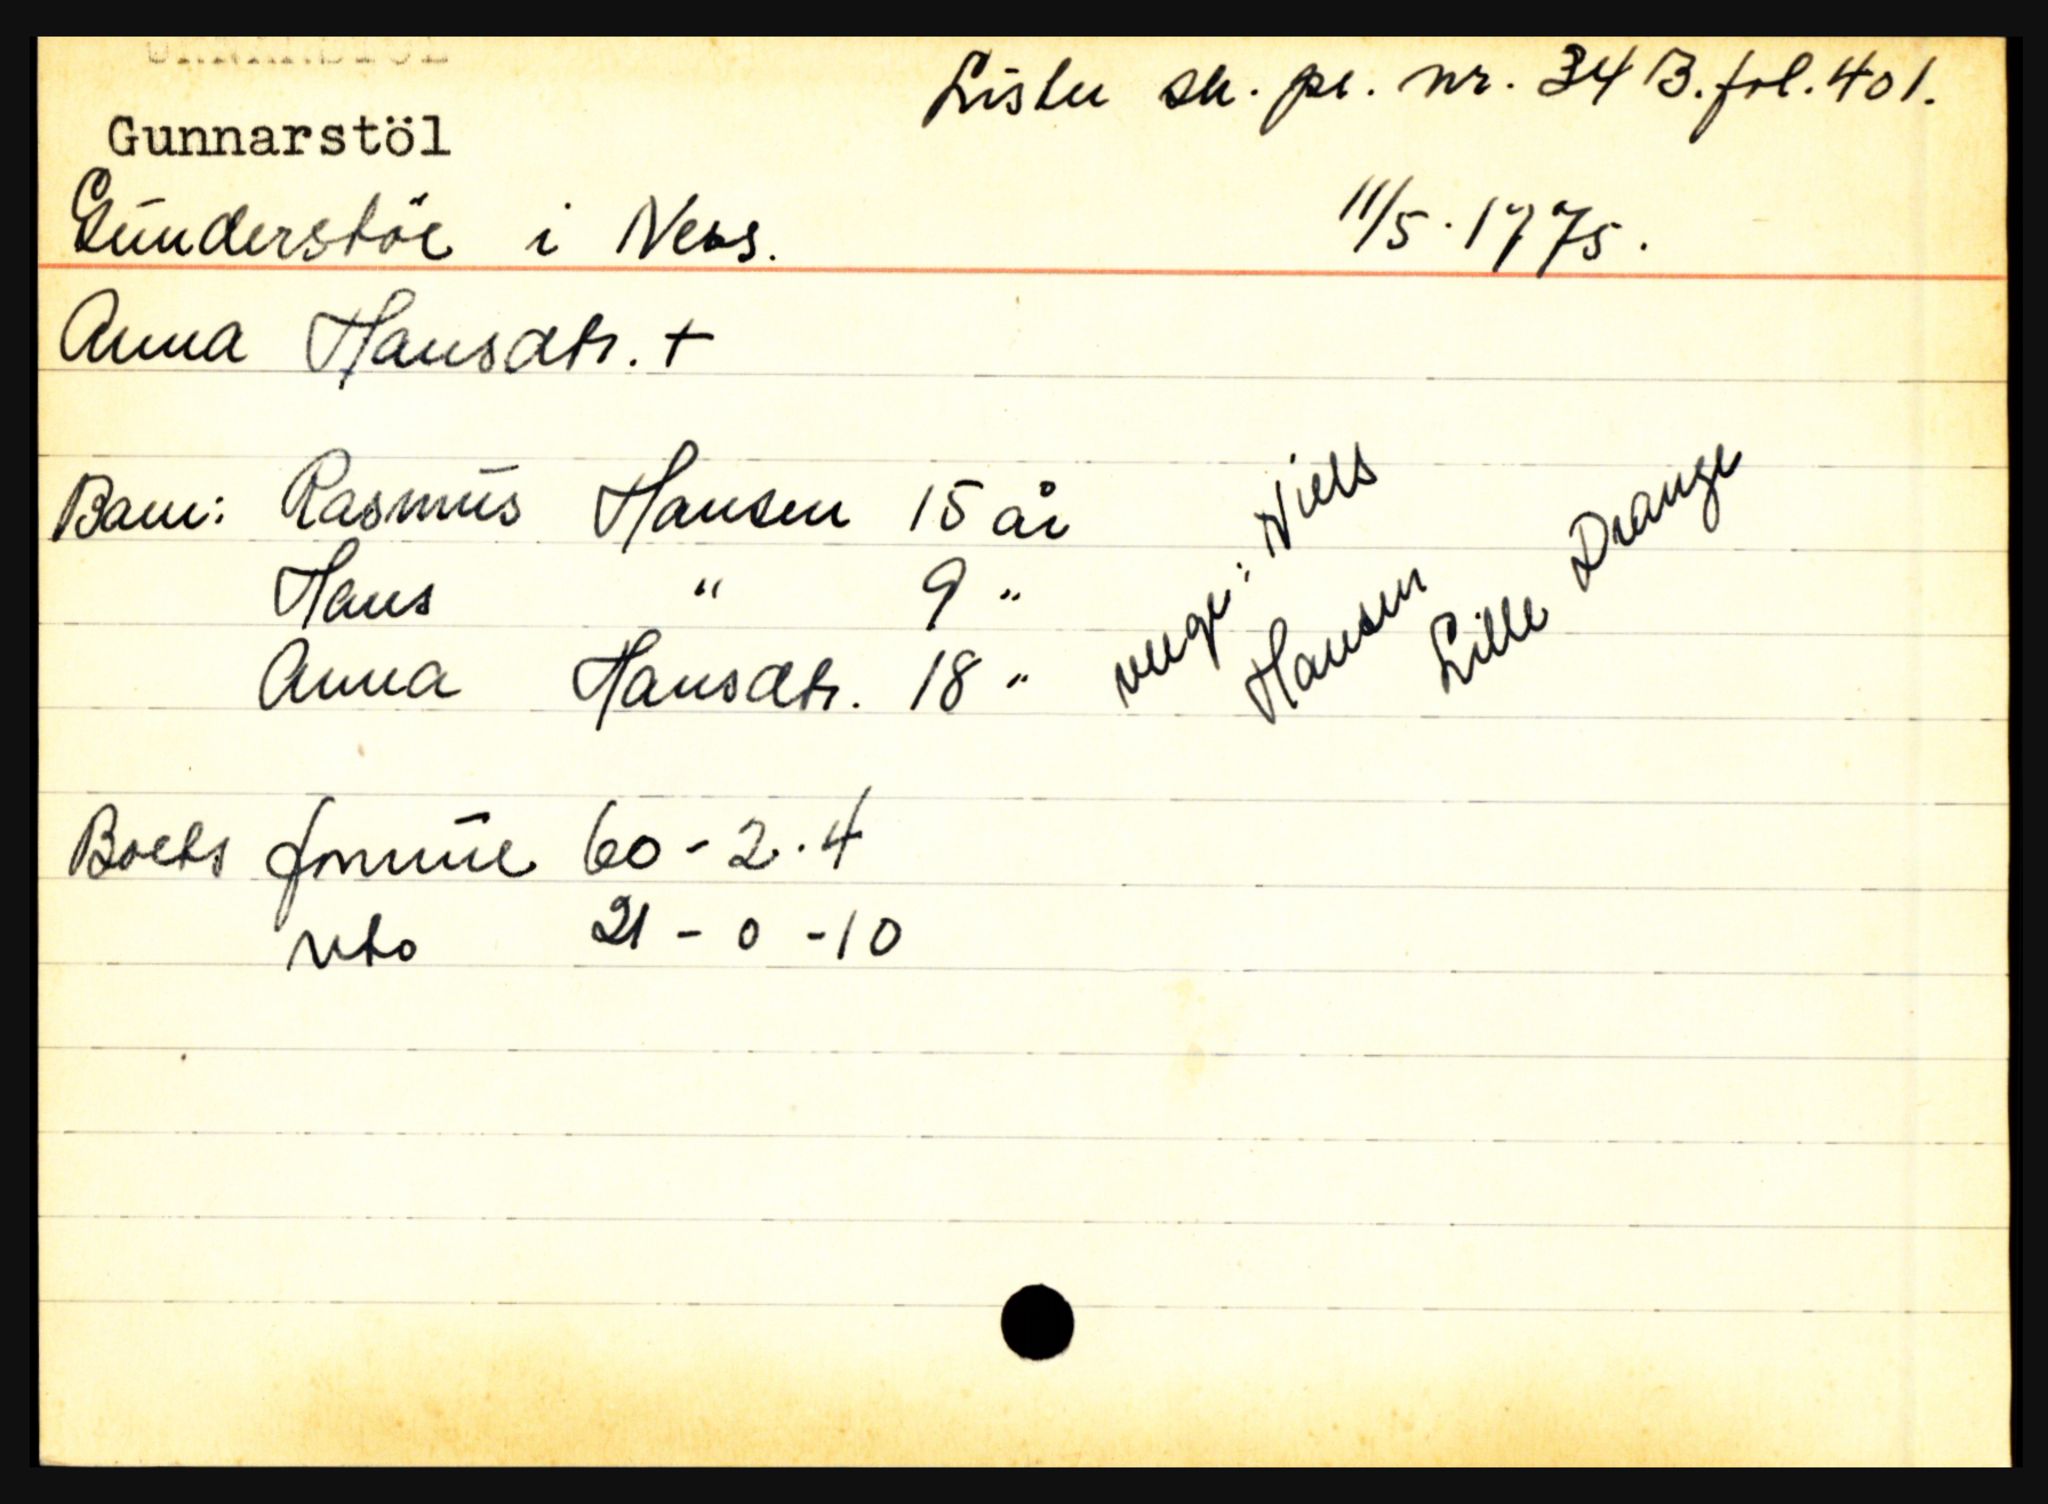 Lister sk. pr. nr. 34 B. fol. 401.
Gunnarstöl
Gunderstöl i Nes.
11/5. 1775.
Anna Hansdtr. +
Barn: Rasmus Hansen 15 år
Hans " 9 "
Anna Hansdtr. 18 "
verge: Niels
Hansen
Lille Drange
Boets formue 60 - 2. 4
nto 21 - 0 - 10